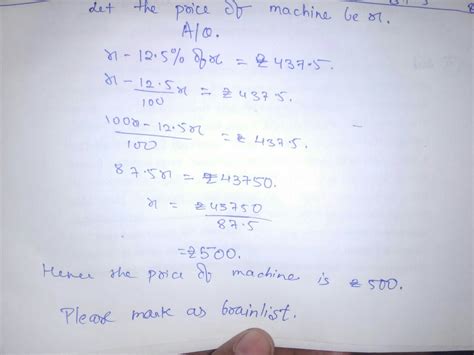 Let the price of machine be x.
A/Q.
x - 12.5% of x = ₹ 437.5.
x - 12.5/100 x = ₹ 437.5.
100x - 12.5x/100 = ₹ 437.5.
87.5x = ₹43750.
x = ₹43750/87.5
= ₹500.
Hence the price of machine is ₹ 500.
Please mark as brainlist.